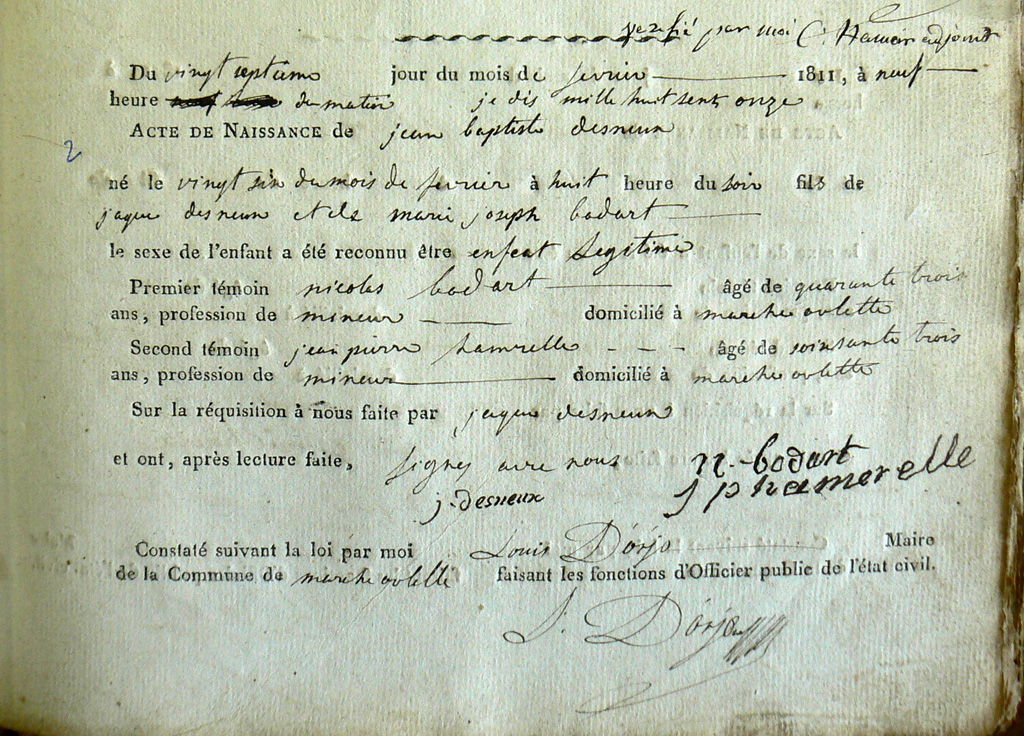 verifié par moi C. Hamoir adjoint
Du vingt septieme jour du mois de fevrier 1811, à neuf
heure du matin je dis mille huit sent onze
ACTE DE NAISSANCE de jean baptiste desneux
2
né le vingt six du mois de fevrier à huit heure du soir fils de
jaque desneux et de marie joseph bodart
le sexe de l'enfant a été reconnu être enfent legitime
Premier témoin nicolas bodart âgé de quarante trois
ans, profession de mineur domicilié à marche ovlette
Second témoin jean pierre hamrelle âgé de soinsante trois
ans, profession de mineur domicilié à marche ovlette
Sur la réquisition à nous faite par jaque desneux
et ont, après lecture faite, signez avre nous n. bodart
j. desneux j p hamerelle
Constaté suivant la loi par moi Louis Dorjo Maire
de la Commune de marche ovlette faisant les fonctions d'Officier public de l'état civil.
L. Dorjo